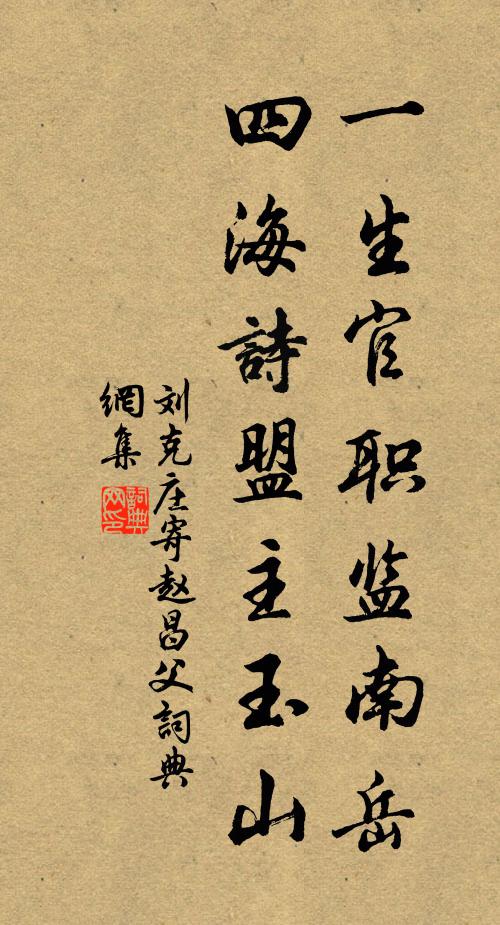 一生官职监南岳
四海詩盟主玉山
刘克庄寄赵昌父詞典
網集
詞典
网印